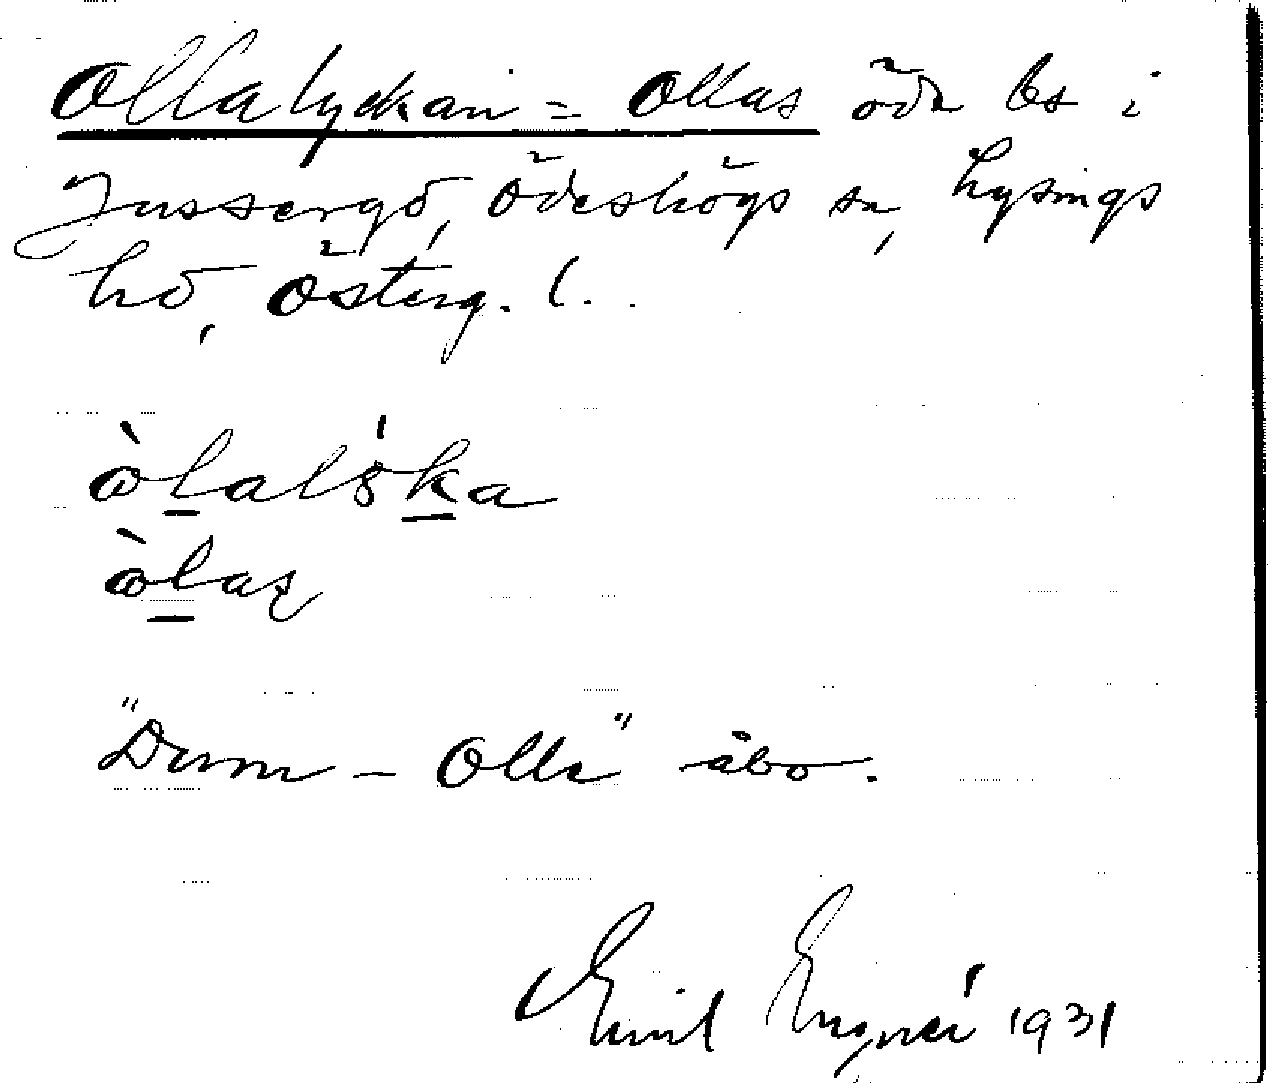 Ollalyckan = Ollas öde bs i
Jussergö, Ödeshögs sn, Lysings
hd, Österg. l..
òlaló́ka
òlas
"Dum-Olle" åbo.
Emil Engné 1931